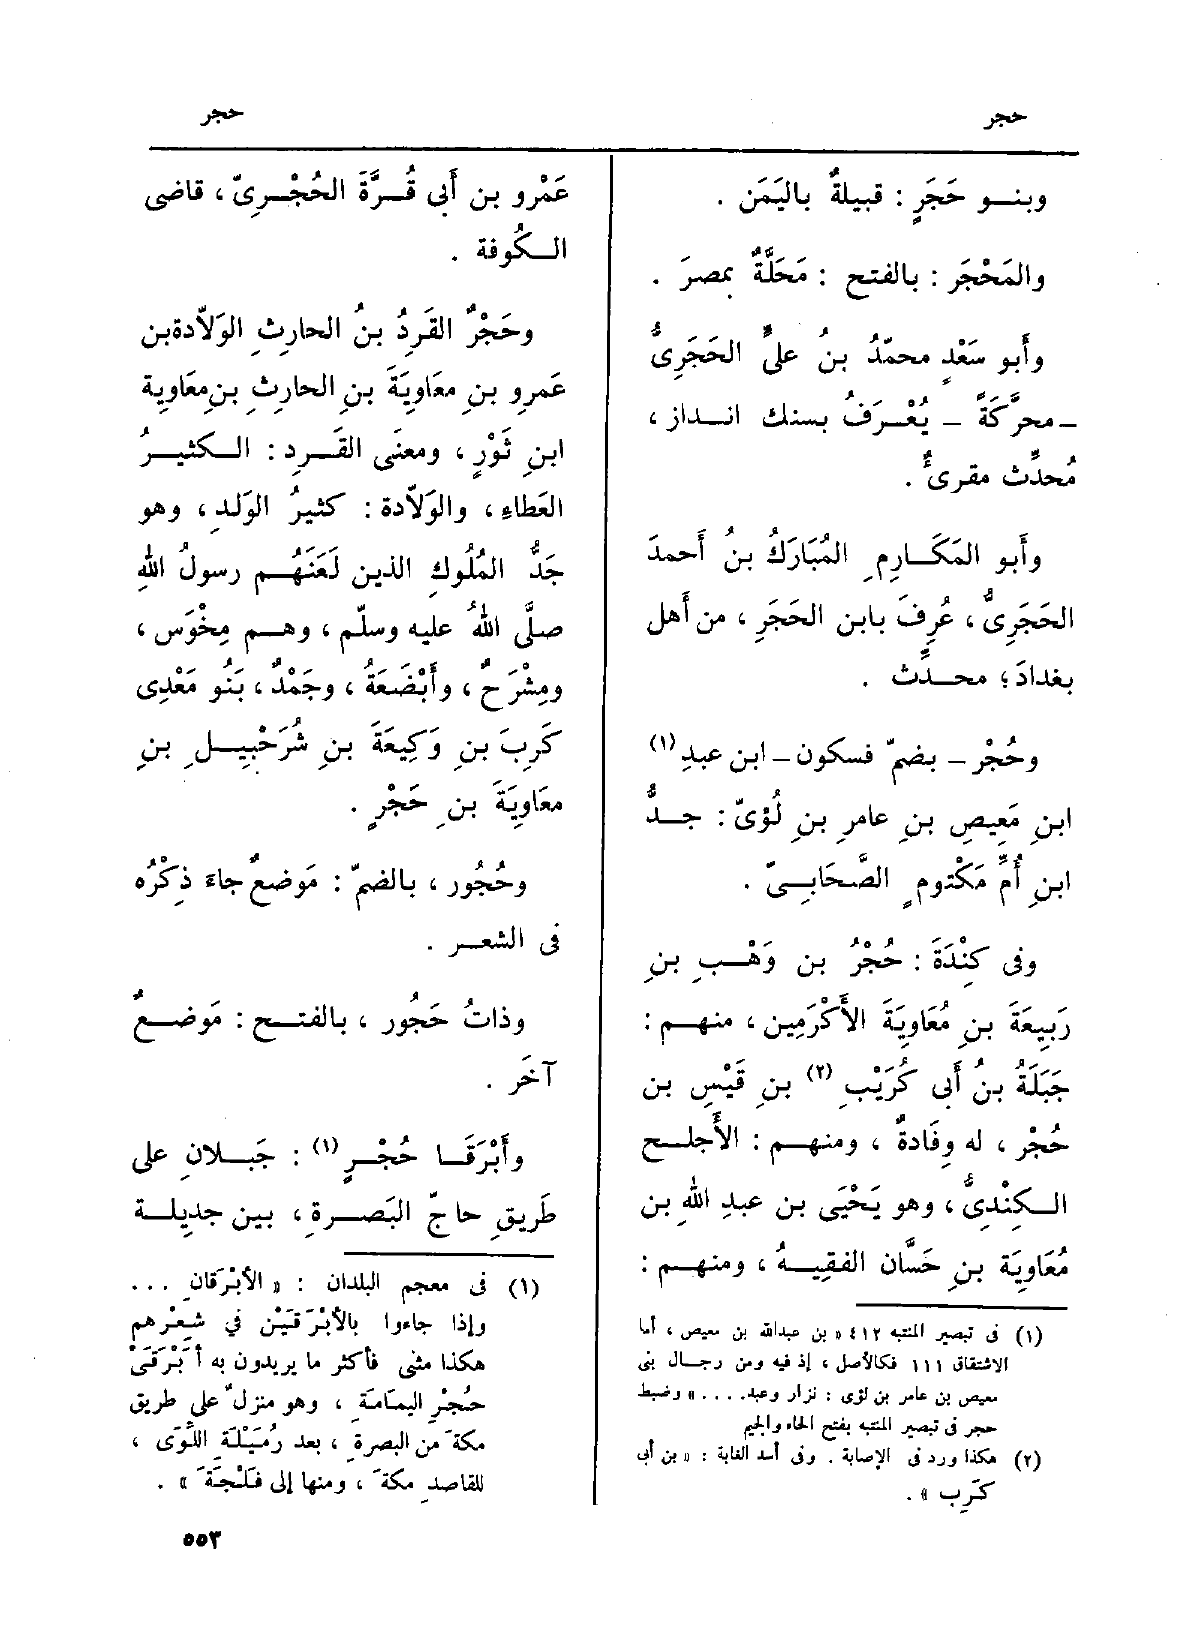 حجر
حجر
وبنــو حَجَرٍ : قبيلةٌ باليَمَن .
والمَحْجَر : بالفتح : مَحَلَّةٌ بمصرَ .
وأَبو سَعْدٍ محمّدُ بنُ علىٍّ الحَجَرِىُّ
ــ محرَّكَةً ــ يُعْــرَفُ بسنك انــداز ،
مُحدِّث مقرىءٌ .
وأَبو المَكَــارِمِ المُبَارَكُ بنُ أَحمدَ
الحَجَرِىُّ ، عُرِفَ بابن الحَجَرِ ، من أَهل
بغدادَ ؛ محــدِّث .
وحُجْر ــ بضمّ فسكون ــ ابن عبدِ (١)
ابنِ مَعِيصِ بنِ عامرِ بنِ لُؤىّ : جــدُّ
ابنِ أُمِّ مَكْتومٍ الصَّحَابِــىّ .
وفى كِنْدَةَ : حُجْرُ بن وَهْــبِ بنِ
رَبِيعَةَ بنِ مُعَاوِيَةَ الأَكْرَمِين ، منهــم :
جَبَلَةُ بنُ أَبى كُرَيْبِ (٢) بنِ قَيْسِ بن
حُجْر ، له وِفَادةٌ ، ومنهــم : الأَجلــح
الــكِنْدِىُّ ، وهو يَحْيَى بن عبدِ اللهِ بن
مُعَاوِيَة بنِ حَسَّان الفقيــهُ ، ومنهــم :
(١) فى تبصير المنتبه ٤١٢ « بن عبدالله بن معيص ، أما
الاشتقاق ١١١ فكالأصل ، إذ فيه ومن رجــال بنى
معيص بن عامر بن لؤى : نزار وعبد. . . . » وضبط
حجر فى تبصير المنتبه بفتح الحاء والجيم
(٢) هكذا ورد فى الإصابة . وفى أسد الغابة : « بن أبى
كَرِب » .
عَمْرو بن أَبى قُــرَّةَ الحُجْــرِىّ ، قاضى
الــكُوفة .
وحَجْرٌ القَرِدُ بنُ الحارِثِ الوَلاّدة بن
عَمرِو بنِ معَاوِيَةَ بنِ الحارِثِ بنِ مَعَاوِية
ابنِ ثَوْرٍ ، ومعنَى القَــرِد : الــكثيــرُ
العَطاءِ ، والوَلاّدة : كثيرُ الوَلَدِ ، وهو
جَدُّ المُلُوكِ الذين لَعَنَهُــم رسولُ اللهِ
صلَّى اللهُ عليه وسلّم ، وهــم مِخْوَس ،
ومِشْرَحٌ ، وأَبْضَعَةُ ، وجَمْدٌ ، بَنُو مَعْدِى
كَرِبَ بنِ وَكِيعَةَ بنِ شُرَحْبِيــلِ بنِ
معَاوِيَةَ بنِ حَجْرٍ .
وحُجُور ، بالضمّ : مَوضعٌ جاءَ ذِكْرُه
فى الشعــر .
وذاتُ حَجُور ، بالفتــح : مَوضــعٌ
آخَر .
وأَبْرَقَــا حُجْــرٍ (١) : جَبــلانِ على
طَريقِ حاجّ البَصــرةِ ، بين جديلــة
(١) فى معجم البلدان : « الأبْرَقان . . .
وإذا جاءوا بالأبْرَقَيْن في شِعِرْهم
هكذا مثنى فأكثر ما يريدون به أبْرَقَىْ
حُجْرِ اليمامَةِ ، وهو منزل ٌ على طريق
مكةَ من البصرة ، بعد رُمَيْلَةِ اللِّوَى ،
للقاصدِ مكةَ ، ومنها إلى فَلْجَةَ » .
٥٥٣